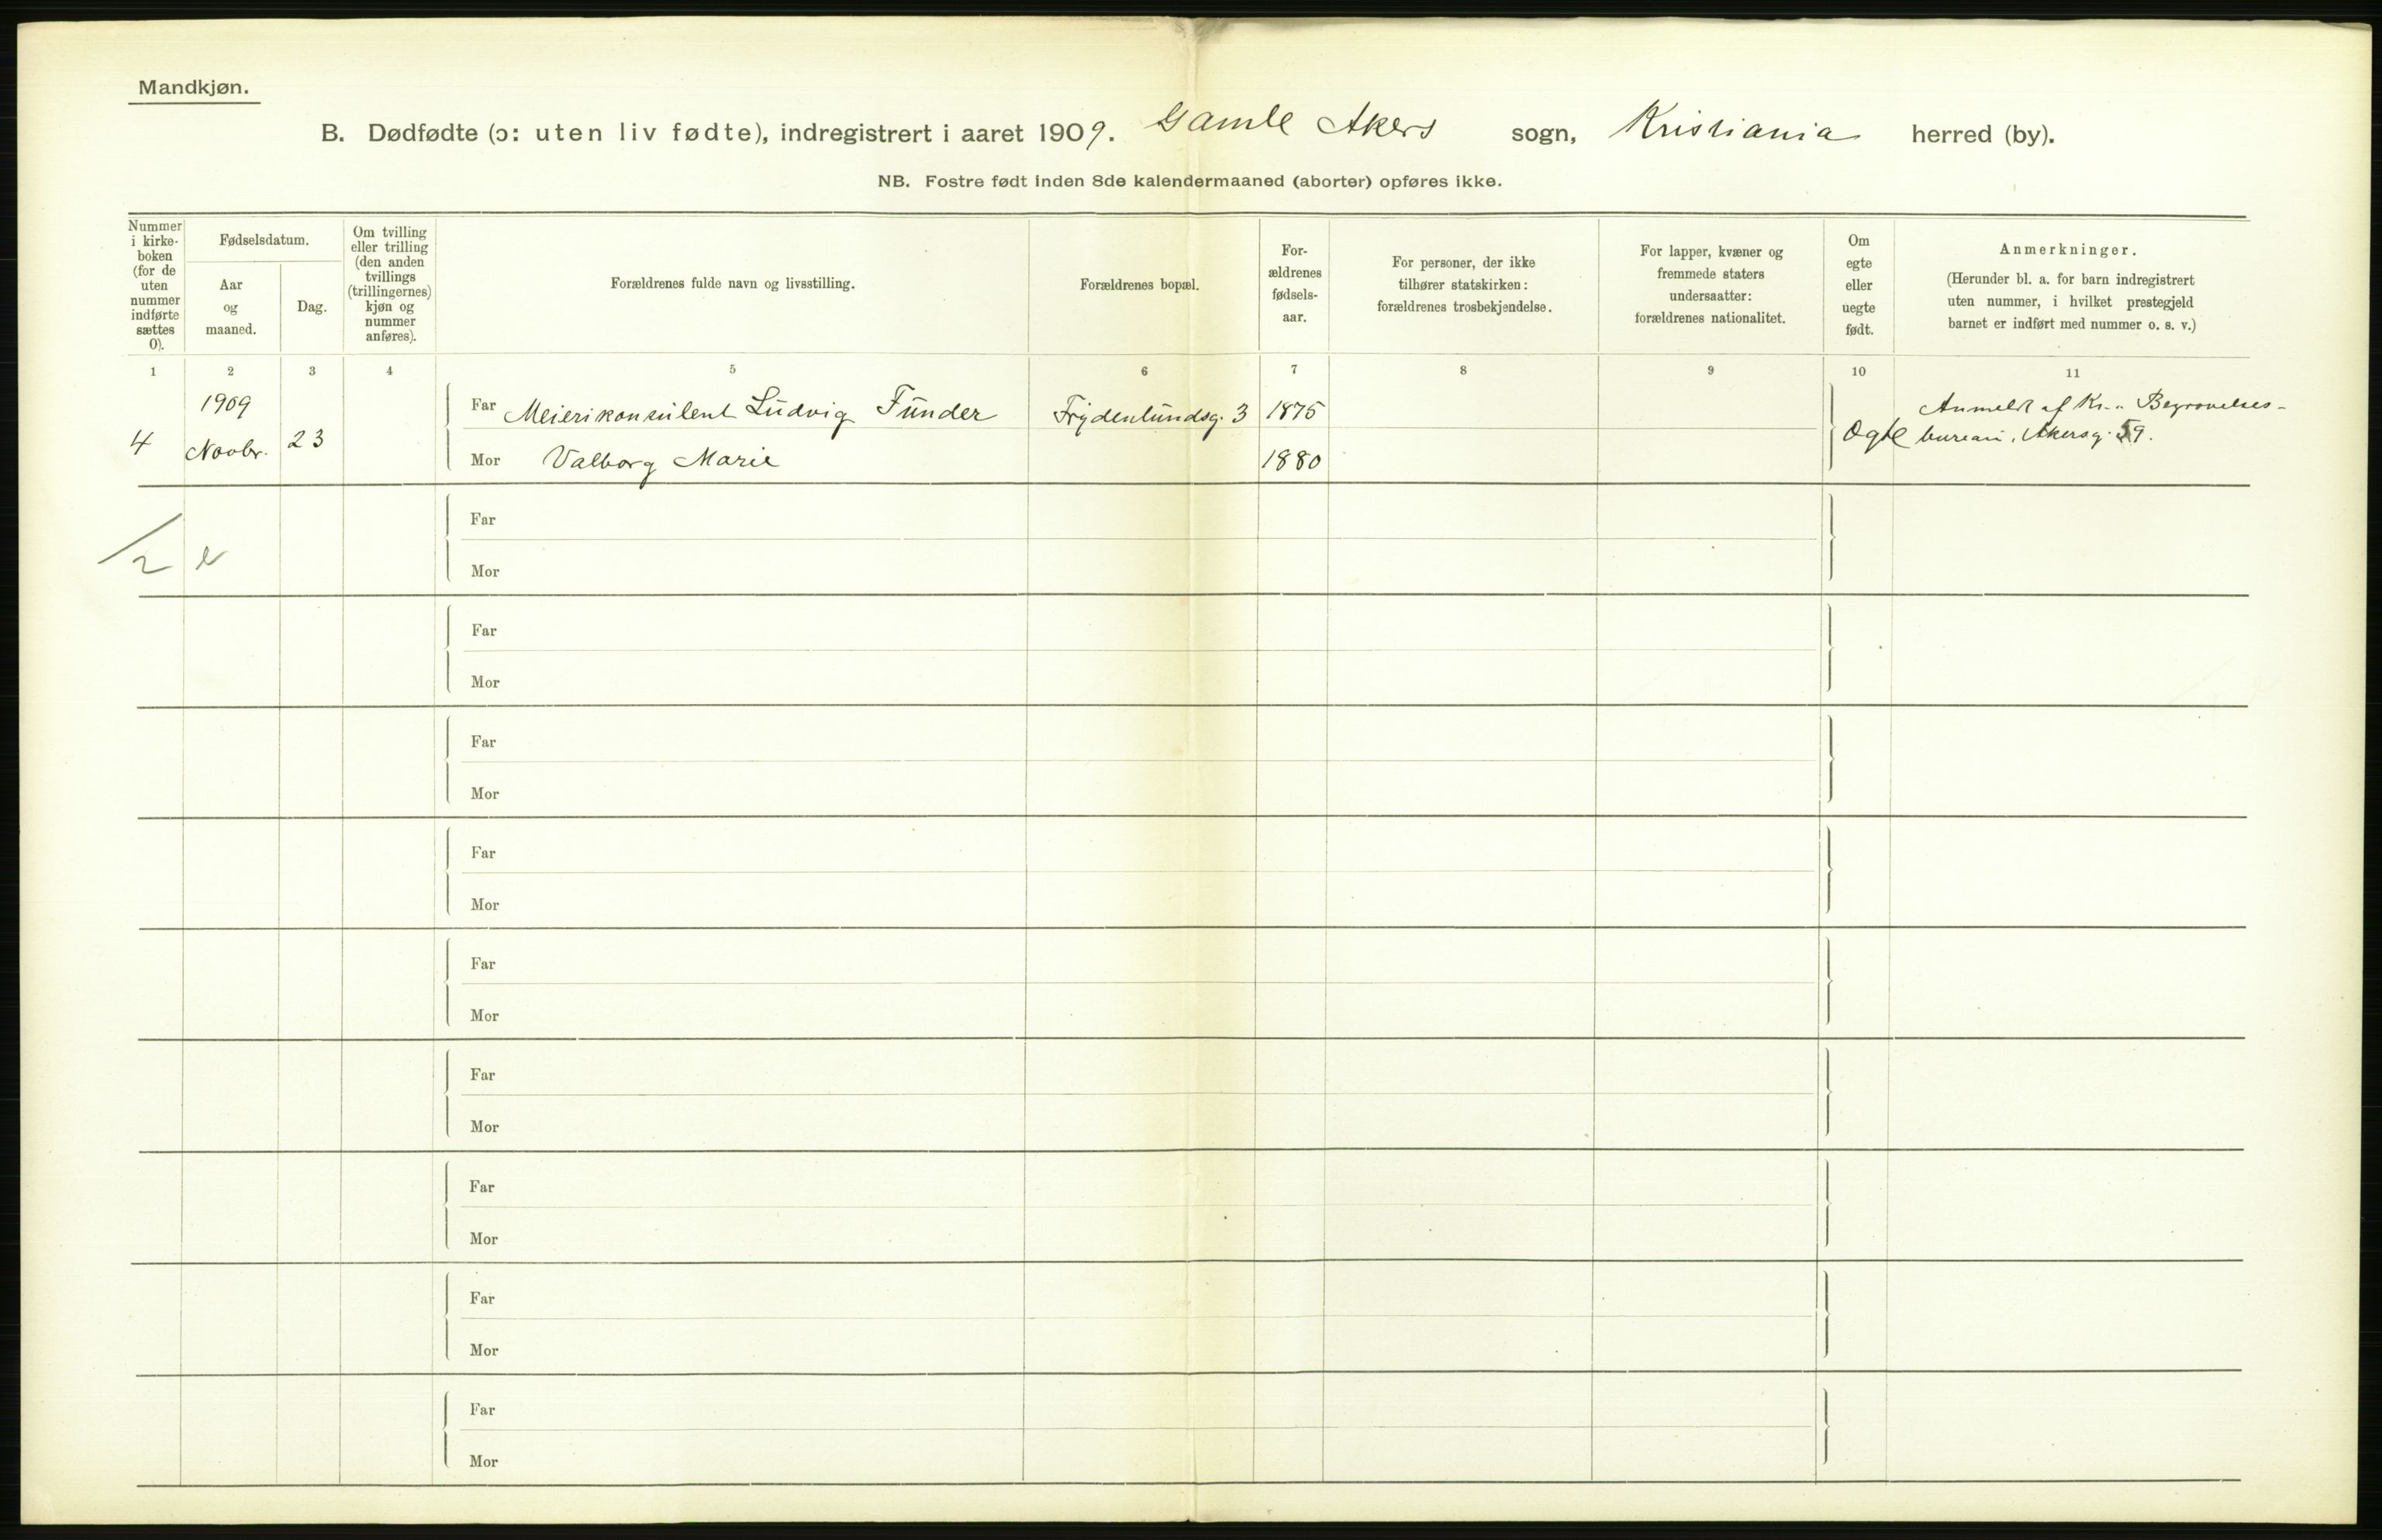 Mandkjøn.
B. Dødfødte (ɔ: uten liv fødte), indregistrert i aaret 1909. Gamle Akers sogn, Kristiania herred (by).
NB. Fostre født inden 8de kalendermaaned (aborter) opføres ikke.
Nummer
i kirke-
boken
(for de
uten
nummer
indførte
sættes
0).
Fødselsdatum.
Aar
og
maaned.
Dag.
Om tvilling
eller trilling
(den anden
tvillings
(trillingernes)
kjøn og
nummer
anføres).
Forældrenes fulde navn og livsstilling.
Forældrenes bopæl.
For-
ældrenes
fødsels-
aar.
For personer, der ikke
tilhører statskirken:
forældrenes trosbekjendelse.
For lapper, kvæner og
fremmede staters
undersaatter:
forældrenes nationalitet.
Om
egte
eller
uegte
født.
Anmerkninger.
(Herunder bl. a. for barn indregistrert
uten nummer, i hvilket prestegjeld
barnet er indført med nummer o. s. v.)
1 2 3 4 5 6 7 8 9 10 11
4
1909
Novbr.
23
Far Meierikonsulent Ludvig Funder
Frydenlundsg. 3
1875
Mor Valborg Marie
1880
Ogte
Anmeldt af Kr.a Begravelses-
bureau, Akersg. 59.
Far
Mor
Far
Mor
Far
Mor
Far
Mor
Far
Mor
Far
Mor
Far
Mor
Far
Mor
Far
Mor